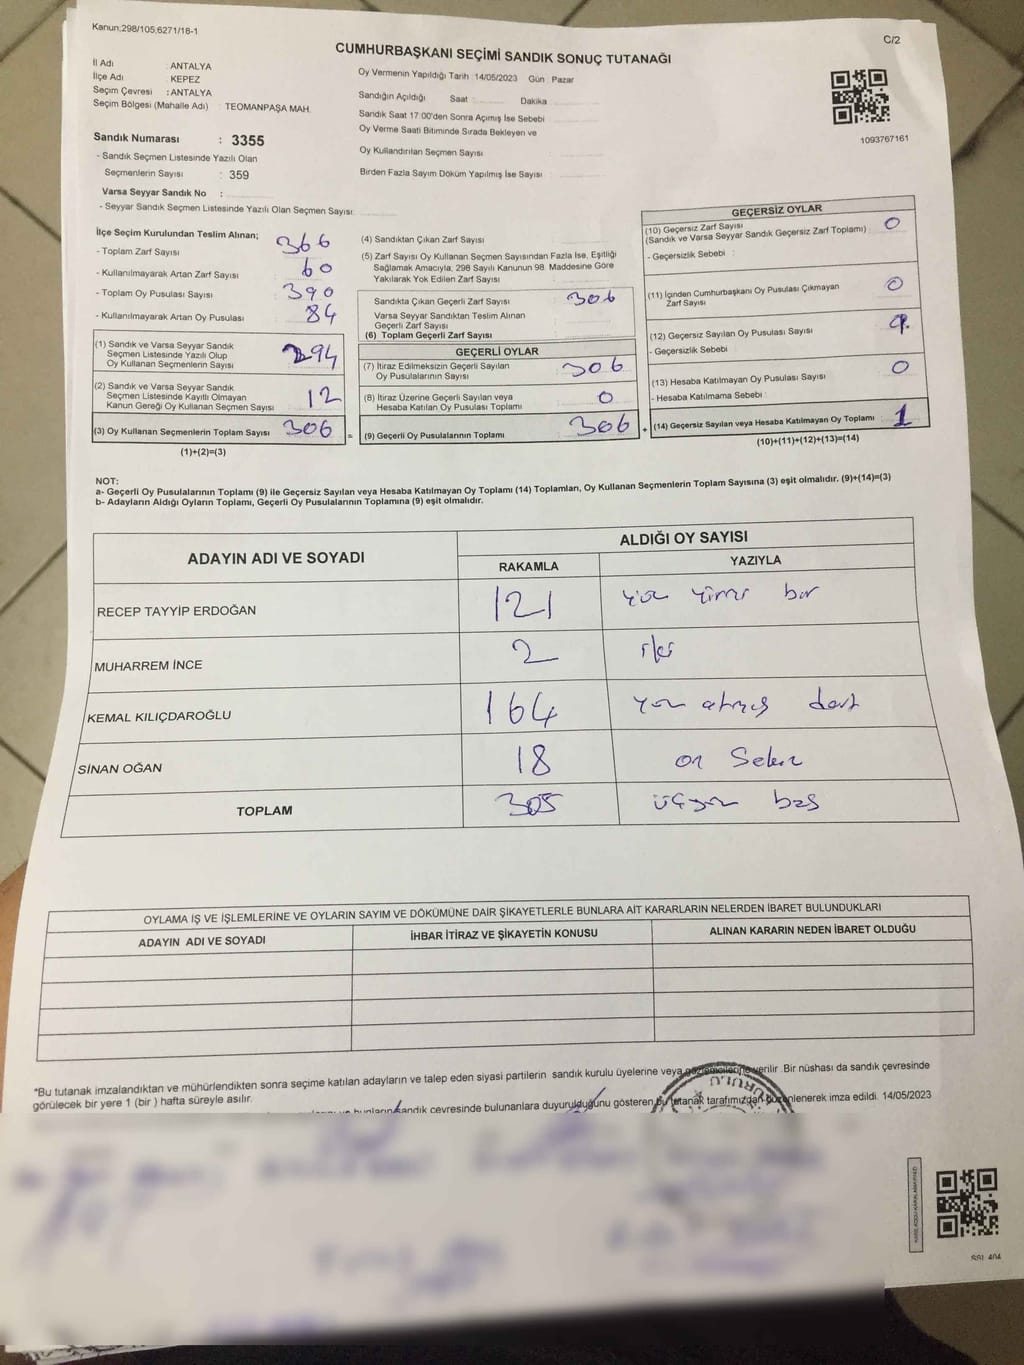 Kanun:298/105,6271/18-1
C/2
CUMHURBAŞKANI SEÇİMİ SANDIK SONUÇ TUTANAĞI
İl Adı : ANTALYA
İlçe Adı : KEPEZ
Seçim Çevresi : ANTALYA
Seçim Bölgesi (Mahalle Adı) : TEOMANPAŞA MAH.
Sandık Numarası : 3355
- Sandık Seçmen Listesinde Yazılı Olan
Seçmenlerin Sayısı : 359
Varsa Seyyar Sandık No :
- Seyyar Sandık Seçmen Listesinde Yazılı Olan Seçmen Sayısı
Oy Vermenin Yapıldığı Tarih : 14/05/2023 Gün : Pazar
Sandığın Açıldığı Saat Dakika
Sandık Saat 17:00'den Sonra Açımış İse Sebebi
Oy Verme Saati Bitiminde Sırada Bekleyen ve
Oy Kullandırılan Seçmen Sayısı
Birden Fazla Sayım Döküm Yapılmış İse Sayısı
1093767161
İlçe Seçim Kurulundan Teslim Alınan;
- Toplam Zarf Sayısı 366
- Kullanılmayarak Artan Zarf Sayısı 60
- Toplam Oy Pusulası Sayısı 390
- Kullanılmayarak Artan Oy Pusulası 84
(1) Sandık ve Varsa Seyyar Sandık
Seçmen Listesinde Yazılı Olup
Oy Kullanan Seçmenlerin Sayısı 294
(2) Sandık ve Varsa Seyyar Sandık
Seçmen Listesinde Kayıtlı Olmayan
Kanun Gereği Oy Kullanan Seçmen Sayısı 12
(3) Oy Kullanan Seçmenlerin Toplam Sayısı 306
(1)+(2)=(3)
=
(4) Sandıktan Çıkan Zarf Sayısı
(5) Zarf Sayısı Oy Kullanan Seçmen Sayısından Fazla İse, Eşitliği
Sağlamak Amacıyla, 298 Sayılı Kanunun 98. Maddesine Göre
Yakılarak Yok Edilen Zarf Sayısı
Sandıkta Çıkan Geçerli Zarf Sayısı 306
Varsa Seyyar Sandıktan Teslim Alınan
Geçerli Zarf Sayısı
(6) Toplam Geçerli Zarf Sayısı
GEÇERLİ OYLAR
(7) İtiraz Edilmeksizin Geçerli Sayılan
Oy Pusulalarının Sayısı 306
(8) İtiraz Üzerine Geçerli Sayılan veya
Hesaba Katılan Oy Pusulası Toplamı 0
(9) Geçerli Oy Pusulalarının Toplamı 306
+
GEÇERSİZ OYLAR
(10) Geçersiz Zarf Sayısı
(Sandık ve Varsa Seyyar Sandık Geçersiz Zarf Toplamı) : 0
- Geçersizlik Sebebi :
(11) İçinden Cumhurbaşkanı Oy Pusulası Çıkmayan
Zarf Sayısı 0
(12) Geçersiz Sayılan Oy Pusulası Sayısı
- Geçersizlik Sebebi
(13) Hesaba Katılmayan Oy Pusulası Sayısı 0
- Hesaba Katılmama Sebebi
(14) Geçersiz Sayılan veya Hesaba Katılmayan Oy Toplamı 1
(10)+(11)+(12)+(13)=(14)
NOT:
a- Geçerli Oy Pusulalarının Toplamı (9) ile Geçersiz Sayılan veya Hesaba Katılmayan Oy Toplamı (14) Toplamları, Oy Kullanan Seçmenlerin Toplam Sayısına (3) eşit olmalıdır. (9)+(14)=(3)
b- Adayların Aldığı Oyların Toplamı, Geçerli Oy Pusulalarının Toplamına (9) eşit olmalıdır.
ADAYIN ADI VE SOYADI ALDIĞI OY SAYISI
RAKAMLA YAZIYLA
RECEP TAYYİP ERDOĞAN 121 yüz yirmi bir
MUHARREM İNCE 2 iki
KEMAL KILIÇDAROĞLU 164 yüz atmış dört
SİNAN OĞAN 18 on Sekiz
TOPLAM 305 üçyüz beş
OYLAMA İŞ VE İŞLEMLERİNE VE OYLARIN SAYIM VE DÖKÜMÜNE DAİR ŞİKAYETLERLE BUNLARA AİT KARARLARIN NELERDEN İBARET BULUNDUKLARI
ADAYIN ADI VE SOYADI İHBAR İTİRAZ VE ŞİKAYETİN KONUSU ALINAN KARARIN NEDEN İBARET OLDUĞU
*Bu tutanak imzalandıktan ve mühürlendikten sonra seçime katılan adayların ve talep eden siyasi partilerin sandık kurulu üyelerine veya gözlemcilerine verilir .Bir nüshası da sandık çevresinde
görülecek bir yere 1 (bir ) hafta süreyle asılır.
bunların sandık çevresinde bulunanlara duyurulduğunu gösteren bu tutanak tarafımızdan düzenlenerek imza edildi. 14/05/2023
SSI 404